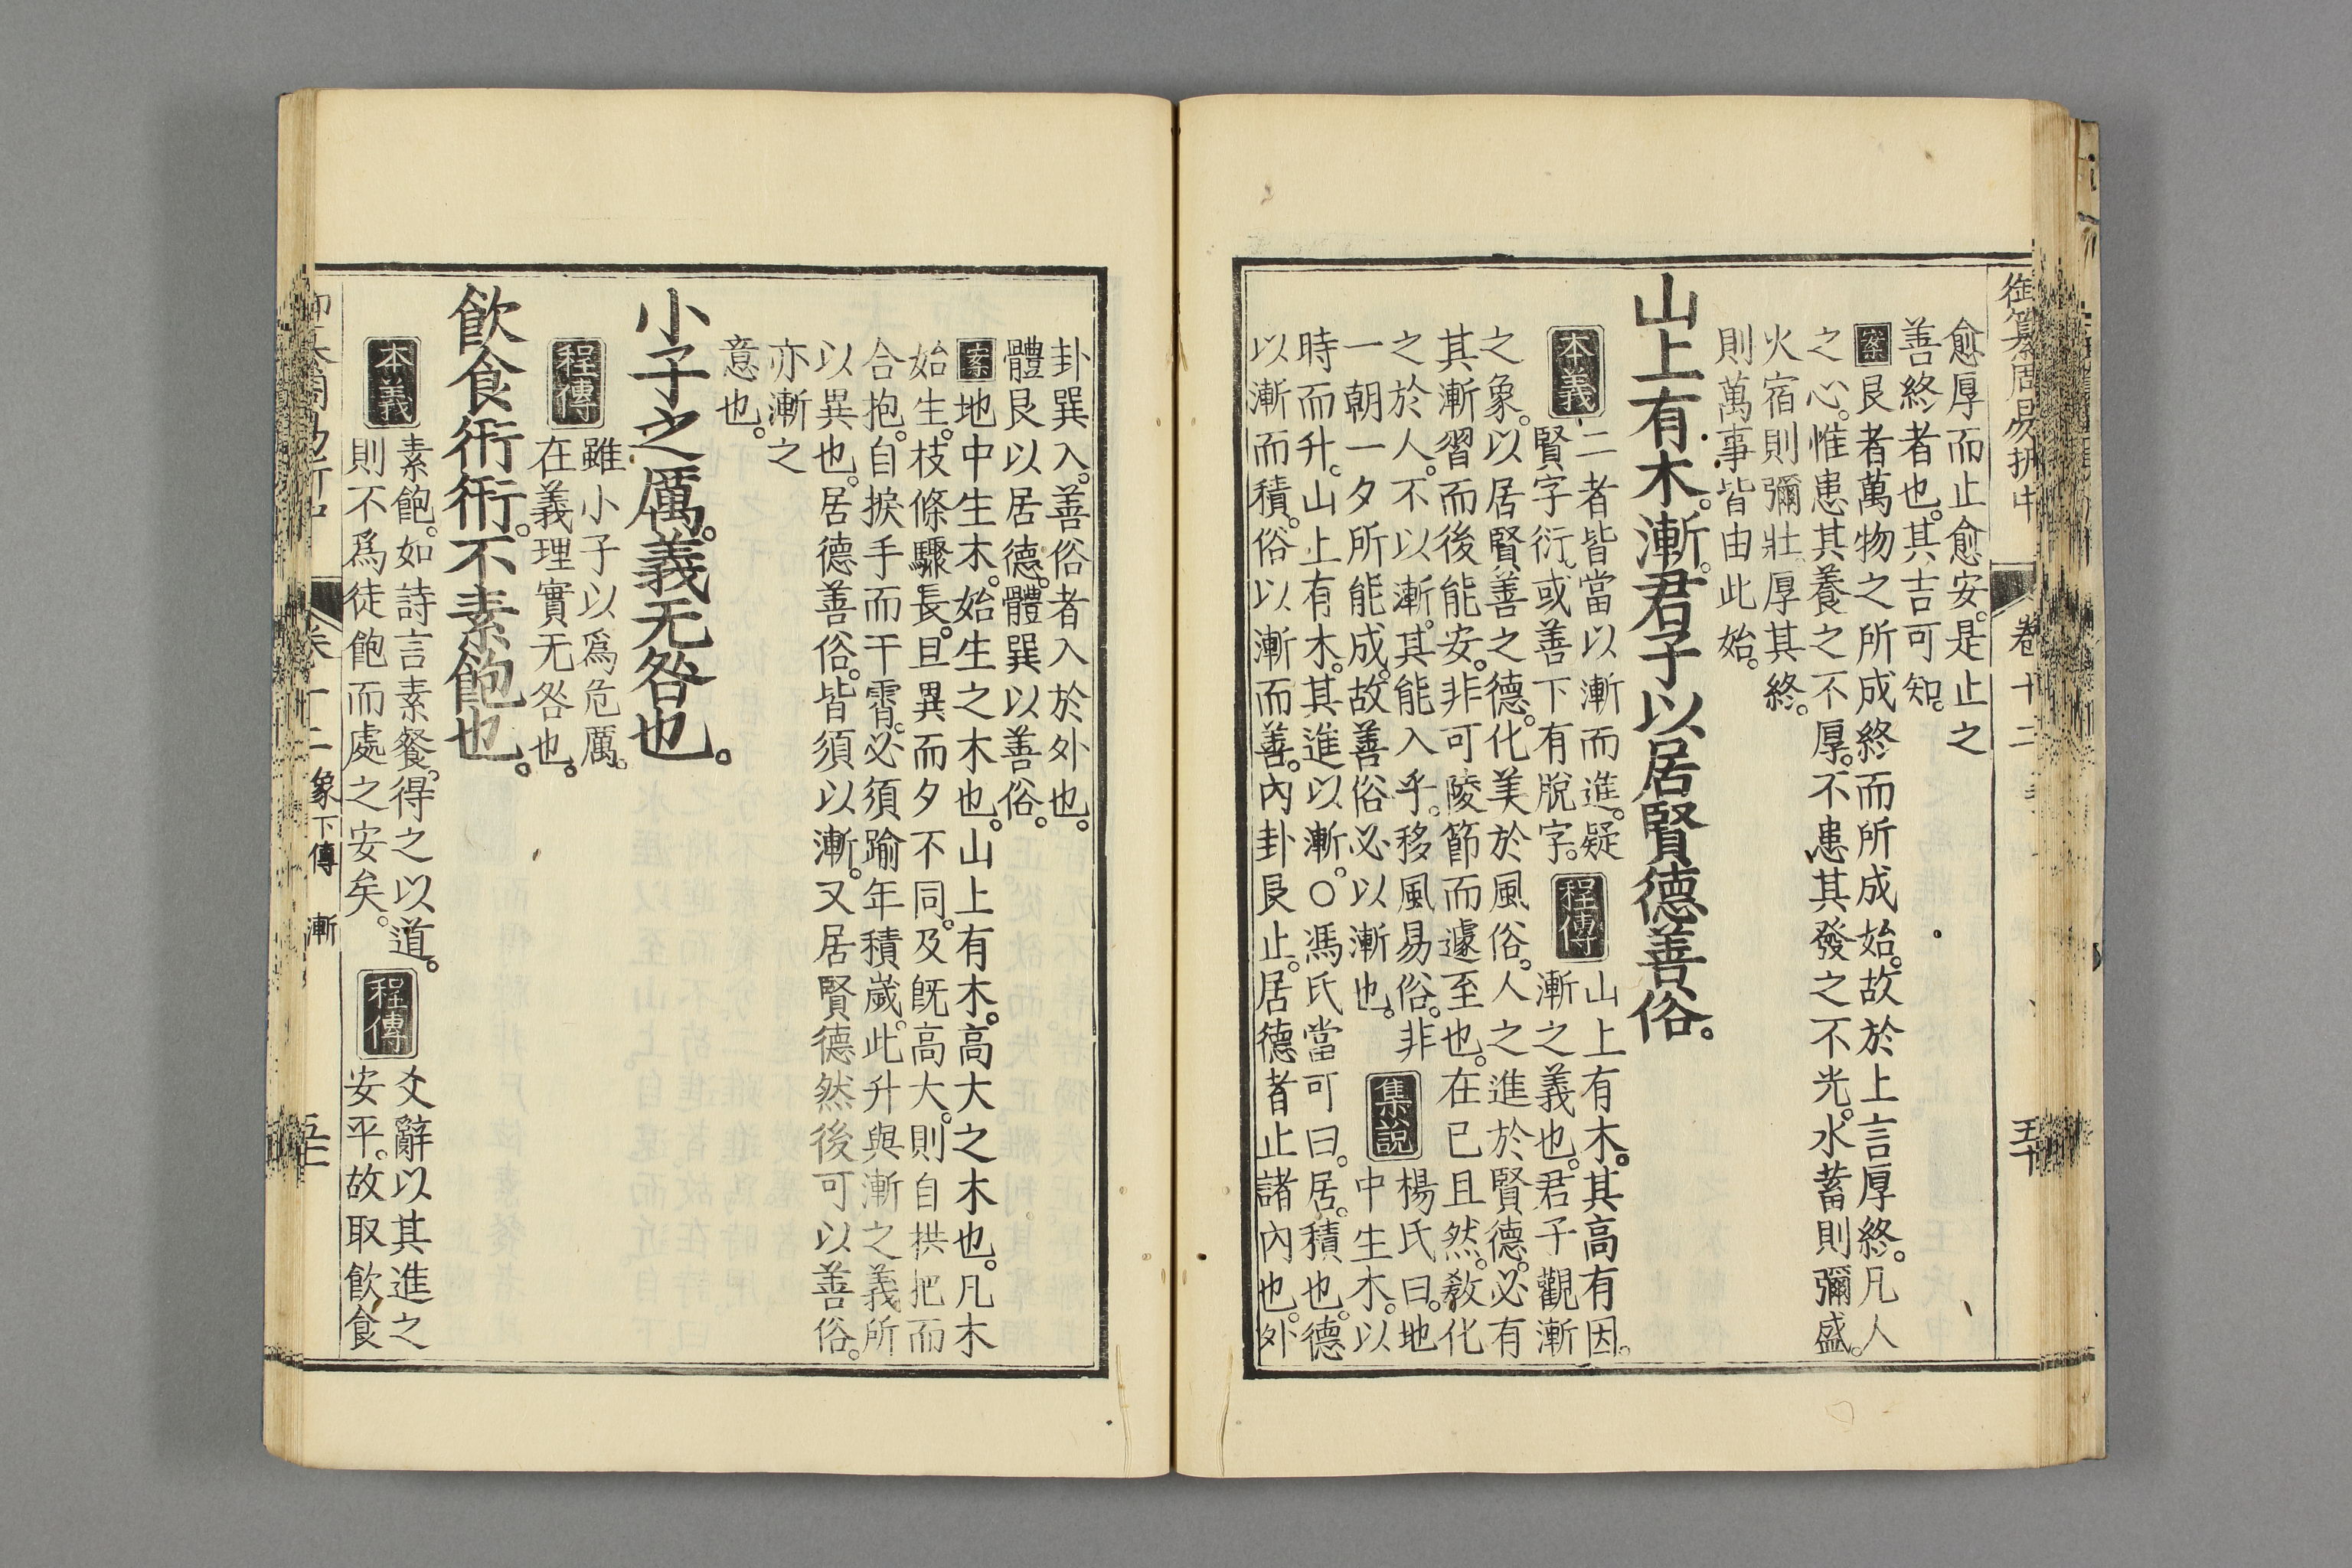 御纂周易折中 卷十二 五十
愈厚而止愈安。是止之
善終者也。其吉可知。
案艮者萬物之所成終而所成始。故於上言厚終。凡人
之心。惟患其養之不厚。不患其發之不光。水蓄則彌盛。
火宿則彌壯。厚其終。
則萬事皆由此始。
山上有木。漸。君子以居賢德善俗。
本義
二者皆當以漸而進。疑
賢字衍。或善下有脫字。
程傳
山上有木。其高有因。
漸之義也。君子觀漸
之象。以居賢善之德。化美於風俗。人之進於賢德。必有
其漸習而後能安。非可陵節而遽至也。在已且然。敎化
之於人。不以漸。其能入乎。移風易俗。非
一朝一夕所能成。故善俗必以漸也。
集說
楊氏曰。地
中生木。以
時而升。山上有木。其進以漸。○馮氏當可曰。居。積也。德
以漸而積。俗以漸而善。內卦艮止。居德者止諸內也。外
卦巽入。善俗者入於外也。
體艮以居德。體巽以善俗。
案地中生木。始生之木也。山上有木。高大之木也。凡木
始生。枝條驟長。旦異而夕不同。及旣高大。則自拱把而
合抱。自捩手而干霄。必須踰年積歲。此升與漸之義所
以異也。居德善俗。皆須以漸。又居賢德然後可以善俗。
亦漸之
意也。
小子之厲。義无咎也。
程傳
雖小子以爲危厲。
在義理實无咎也。
飮食衎衎。不素飽也。
本義
素飽。如詩言素餐。得之以道。
則不爲徒飽而處之安矣。
程傳
爻辭以其進之
安平。故取飮食
卷十二 象下傳 漸